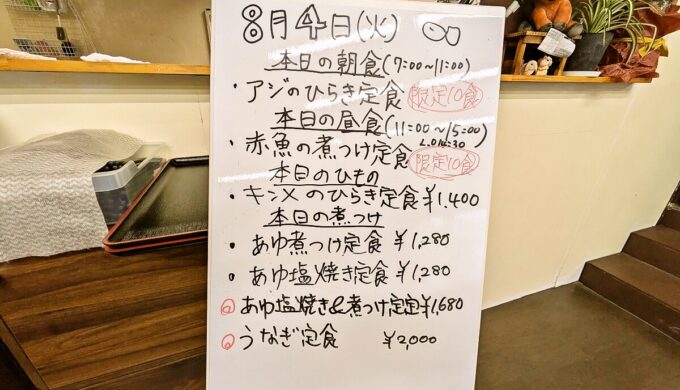 8月4日(火)
本日の朝食(7:00~11:00)
・アジのひらき定食 限定10食
本日の昼食(11:00~15:00)
L.O14:30
・赤魚の煮つけ定食 限定10食
本日のひもの
・キンメのひらき定食¥1,400
本日の煮つけ
・あゆ煮つけ定食 ¥1,280
・あゆ塩焼き定食 ¥1,280
あゆ塩焼き&煮つけ定定¥1,680
うなぎ定食 ¥2,000